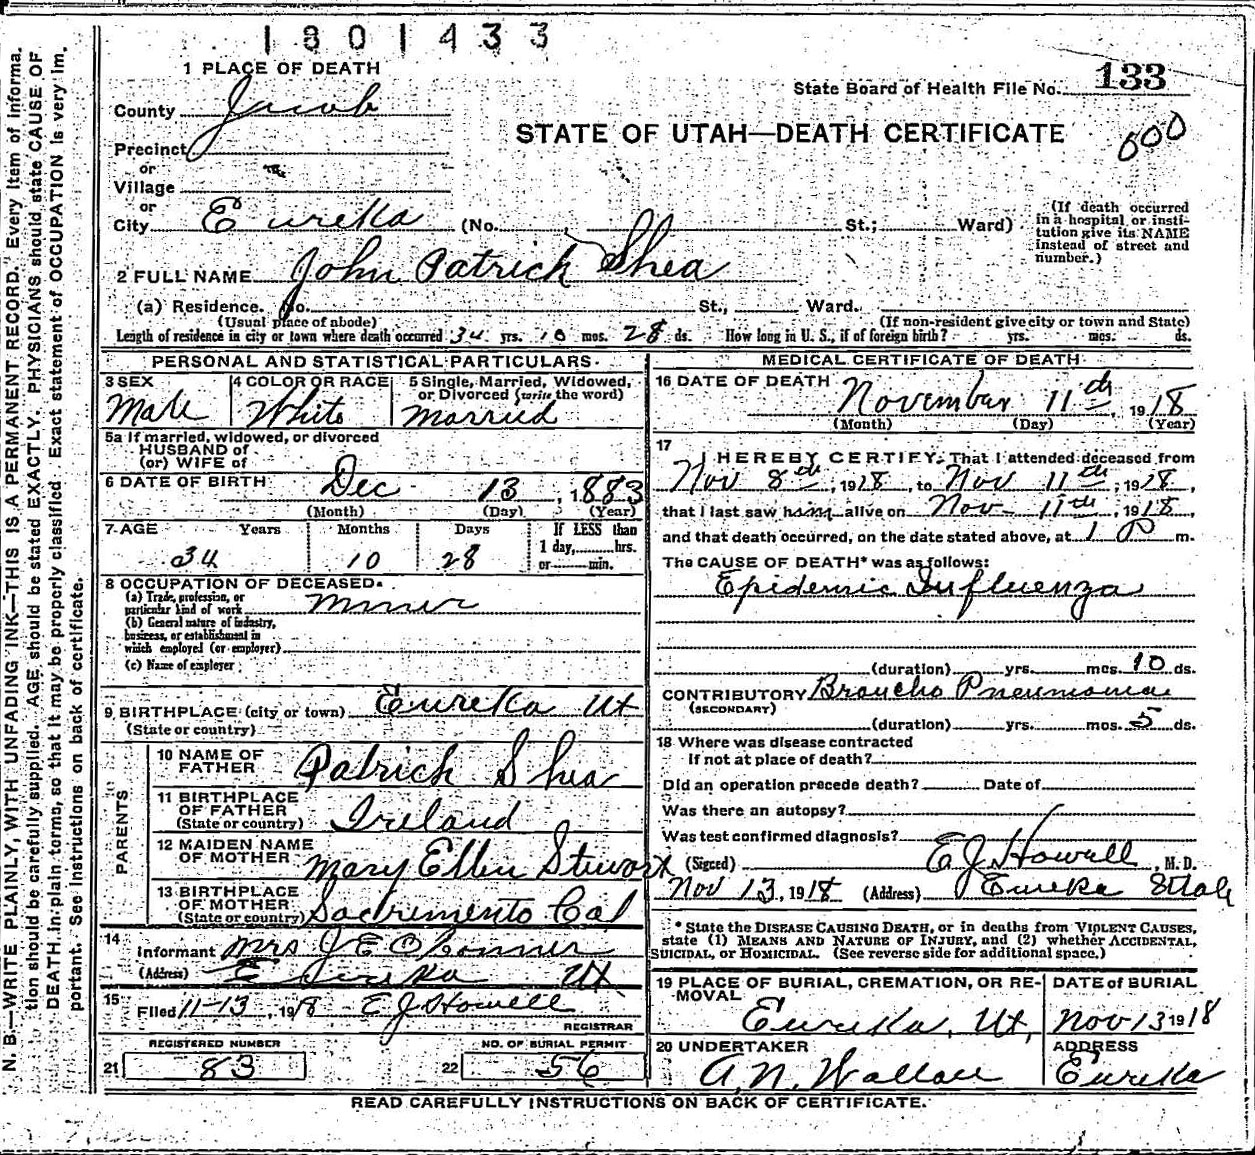 1801433
1 PLACE OF DEATH
State Board of Health File No. 133
County Juab
STATE OF UTAH—DEATH CERTIFICATE
Precinct
or
Village
or
City Eureka (No. St.; Ward)
(If death occurred
in a hospital or insti-
tution give its NAME
instead of street and
number.)
2 FULL NAME John Patrick Shea
(a) Residence. No. St., Ward.
(Usual place of abode) (If non-resident give city or town and State)
Length of residence in city or town where death occurred 34 yrs. 10 mos. 28 ds. How long in U. S., if of foreign birth? yrs. mos. ds.
PERSONAL AND STATISTICAL PARTICULARS
3 SEX
Male
4 COLOR OR RACE
White
5 Single, Married, Widowed,
or Divorced (write the word)
Married
5a If married, widowed, or divorced
HUSBAND of
(or) WIFE of
6 DATE OF BIRTH Dec 13, 1883
(Month) (Day) (Year)
7 AGE Years Months Days
34 10 28
If LESS than
1 day, hrs.
or min.
8 OCCUPATION OF DECEASED
(a) Trade, profession, or
particular kind of work Miner
(b) General nature of industry,
business, or establishment in
which employed (or employer)
(c) Name of employer
9 BIRTHPLACE (city or town) Eureka Ut
(State or country)
PARENTS
10 NAME OF
FATHER Patrick Shea
11 BIRTHPLACE
OF FATHER
(State or country) Ireland
12 MAIDEN NAME
OF MOTHER Mary Ellen Stewart
13 BIRTHPLACE
OF MOTHER
(State or country) Sacremento Cal
14
Informant Mrs J E O Conner
(Address) Eureka Ut
15
Filed 11-13, 1918 E J Howell
REGISTRAR
REGISTERED NUMBER
21 83
NO. OF BURIAL PERMIT
22 56
MEDICAL CERTIFICATE OF DEATH
16 DATE OF DEATH November 11th, 1918
(Month) (Day) (Year)
17
I HEREBY CERTIFY, That I attended deceased from
Nov 8th, 1918, to Nov 11th, 1918,
that I last saw him alive on Nov 11th, 1918,
and that death occurred, on the date stated above, at 1 P m.
The CAUSE OF DEATH* was as follows:
Epidemic Influenza
(duration) yrs. mos. 10 ds.
CONTRIBUTORY Broncho Pneumonia
(SECONDARY)
(duration) yrs. mos. 5 ds.
18 Where was disease contracted
If not at place of death?
Did an operation precede death? Date of
Was there an autopsy?
Was test confirmed diagnosis?
(Signed) E J Howell, M. D.
Nov 13, 1918 (Address) Eureka Utah
* State the DISEASE CAUSING DEATH, or in deaths from VIOLENT CAUSES,
state (1) MEANS AND NATURE OF INJURY, and (2) whether ACCIDENTAL,
SUICIDAL, or HOMICIDAL. (See reverse side for additional space.)
19 PLACE OF BURIAL, CREMATION, OR RE-
MOVAL
Eureka, Ut,
DATE of BURIAL
Nov 13 1918
20 UNDERTAKER
A. N. Wallace
ADDRESS
Eureka
READ CAREFULLY INSTRUCTIONS ON BACK OF CERTIFICATE.
N. B.—WRITE PLAINLY, WITH UNFADING INK—THIS IS A PERMANENT RECORD. Every item of informa-
tion should be carefully supplied. AGE should be stated EXACTLY. PHYSICIANS should state CAUSE OF
DEATH in plain terms, so that it may be properly classified. Exact statement of OCCUPATION is very im-
portant. See instructions on back of certificate.